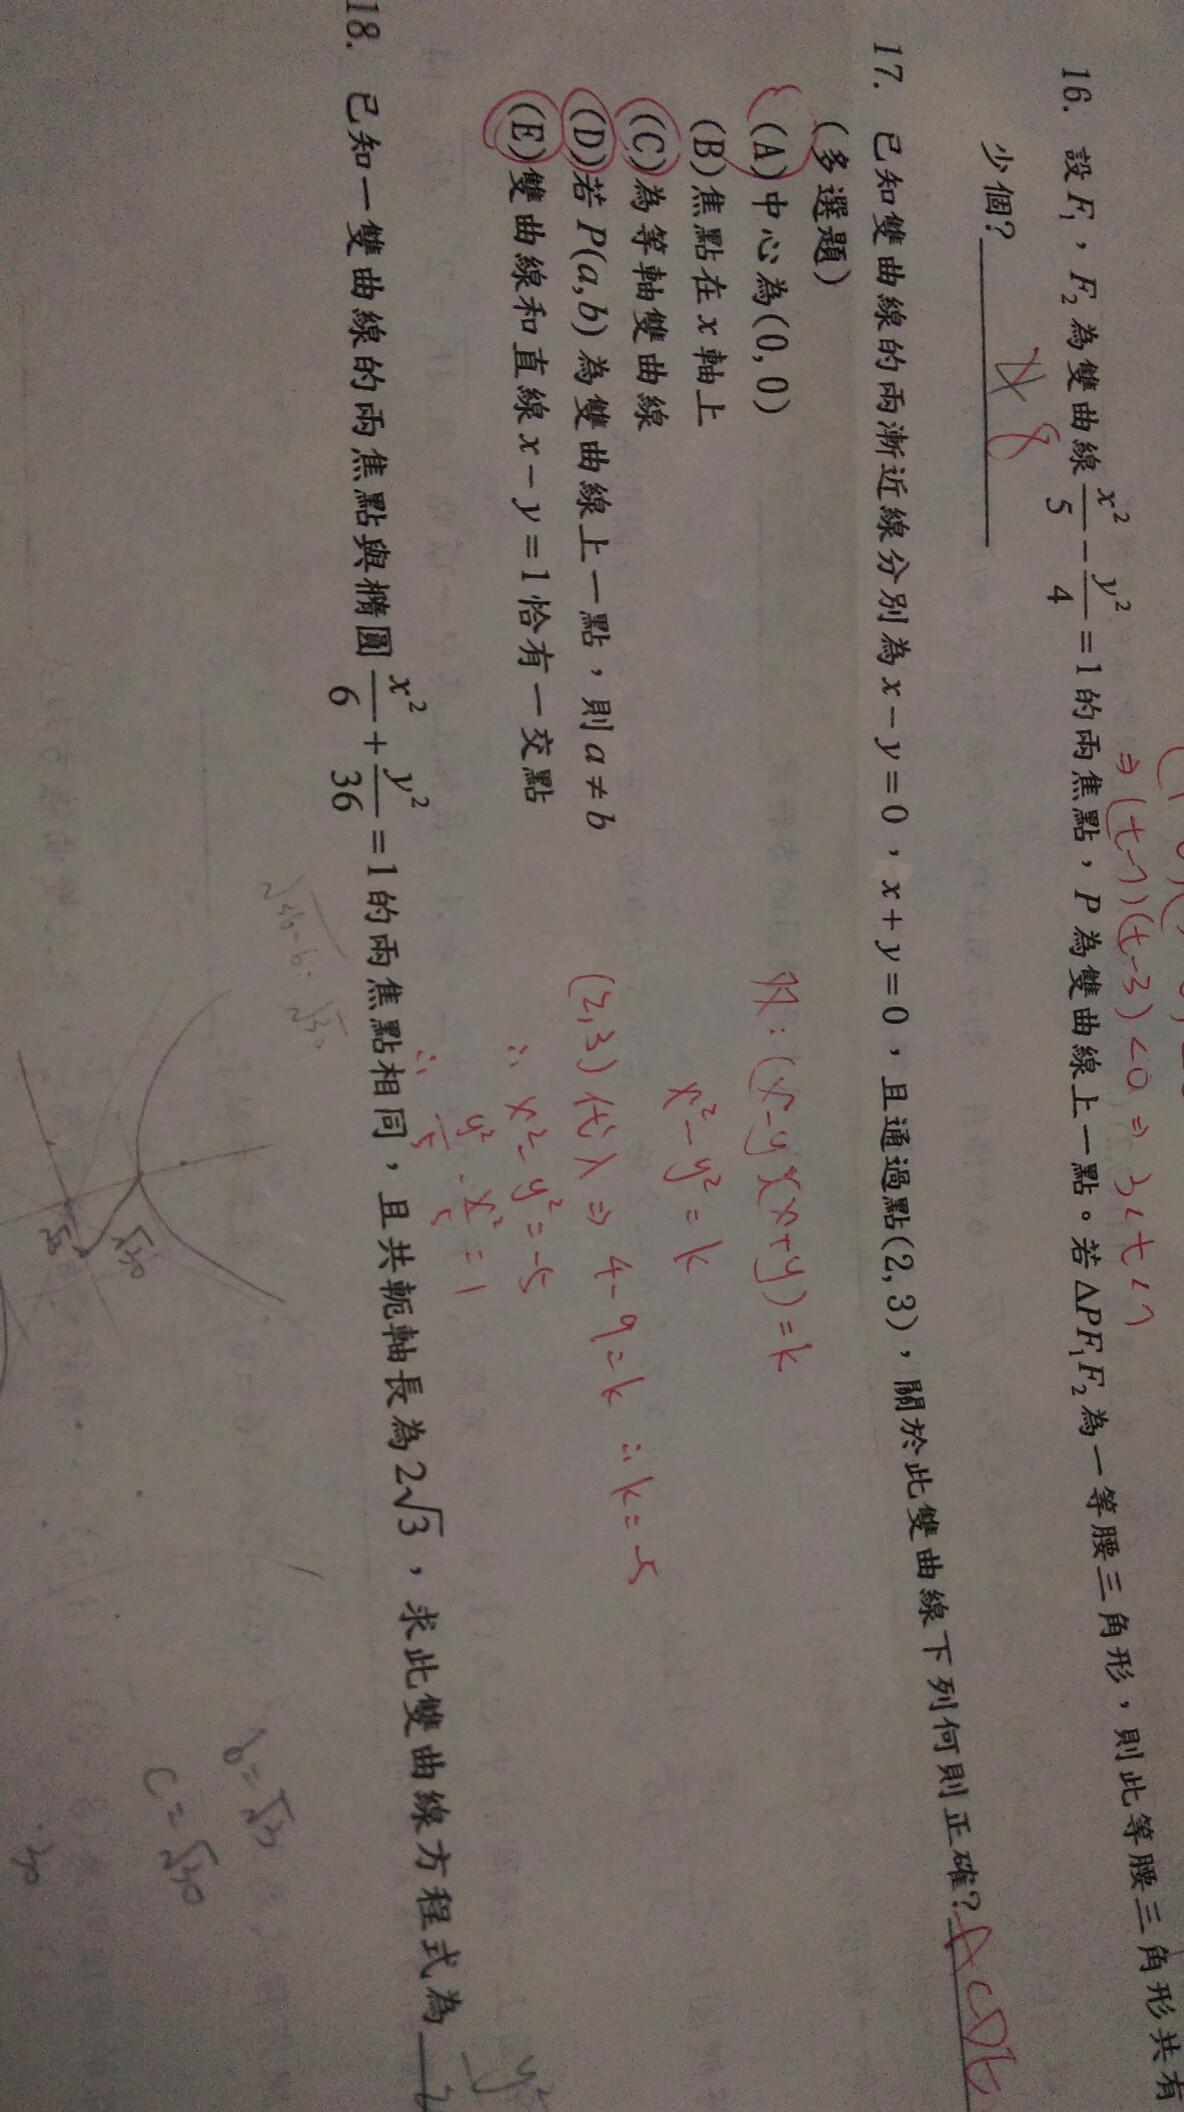 ⇒(t-7)(t-3)<0 ⇒ 3<t<7
16. 設F₁,F₂為雙曲線x²/5-y²/4=1的兩焦點,P為雙曲線上一點。若ΔPF₁F₂為一等腰三角形,則此等腰三角形共有
少個? 4 8
17. 已知雙曲線的兩漸近線分別為x-y=0,x+y=0,且通過點(2,3),關於此雙曲線下列何則正確? ACDE
(多選題)
(A)中心為(0,0)
(B)焦點在x軸上
(C)為等軸雙曲線
(D)若P(a,b)為雙曲線上一點,則a≠b
(E)雙曲線和直線x-y=1恰有一交點
(x-y)(x+y)=k
x²-y²=k
(2,3)代入⇒4-9=k ∴k=-5
∴x²-y²=-5
∴y²/5-x²/5=1
18. 已知一雙曲線的兩焦點與橢圓x²/6+y²/36=1的兩焦點相同,且共軛軸長為2√3,求此雙曲線方程式為
y²
√36-6=√30
√30
b=√3
c=√30
30